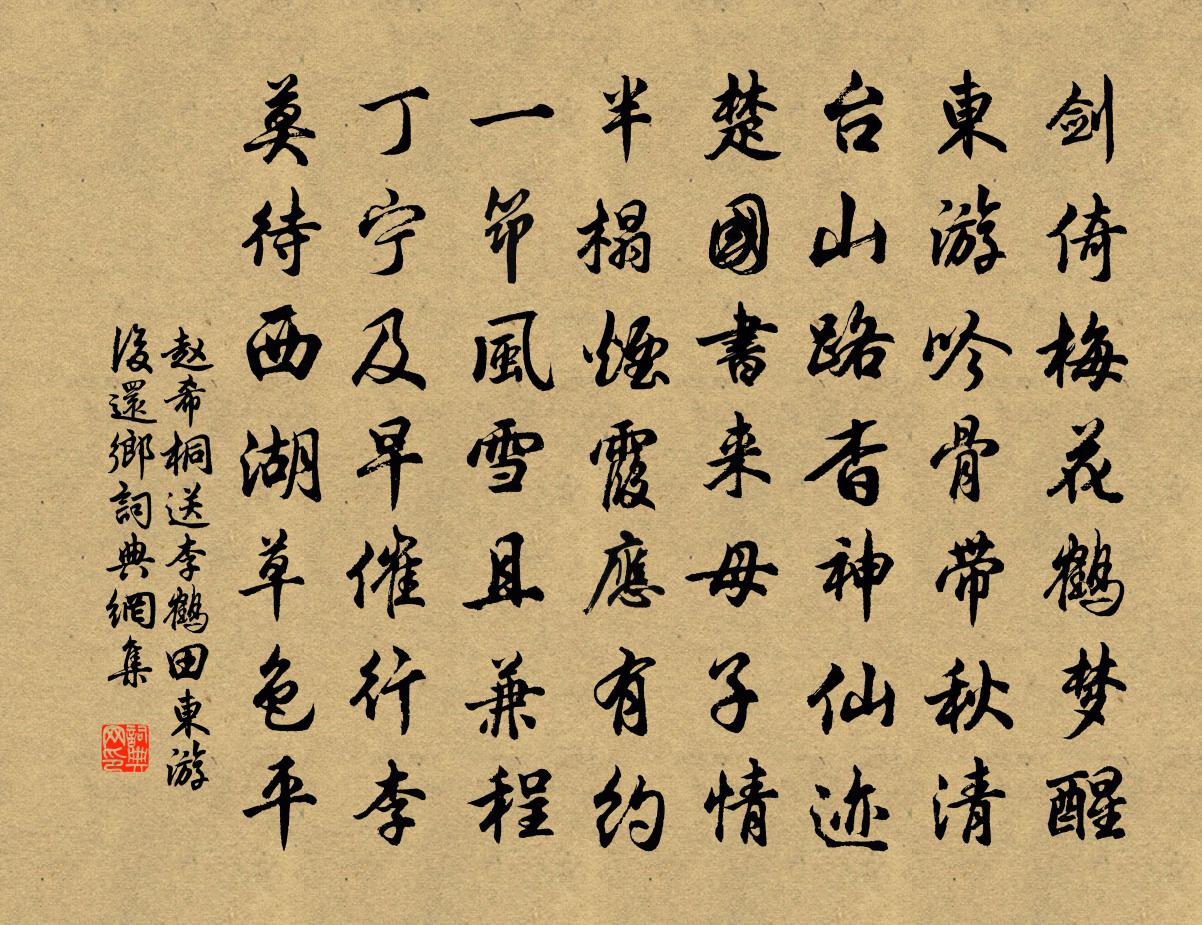 剑倚梅花鹤梦醒
東游吟骨带秋清
台山路杳神仙迹
楚國書来母子情
半榻煙霞應有约
一笻風雪且兼程
丁宁及早催行李
莫待西湖草色平
赵希桐送李鶴田東游
後還鄉詞典網集
詞典网印